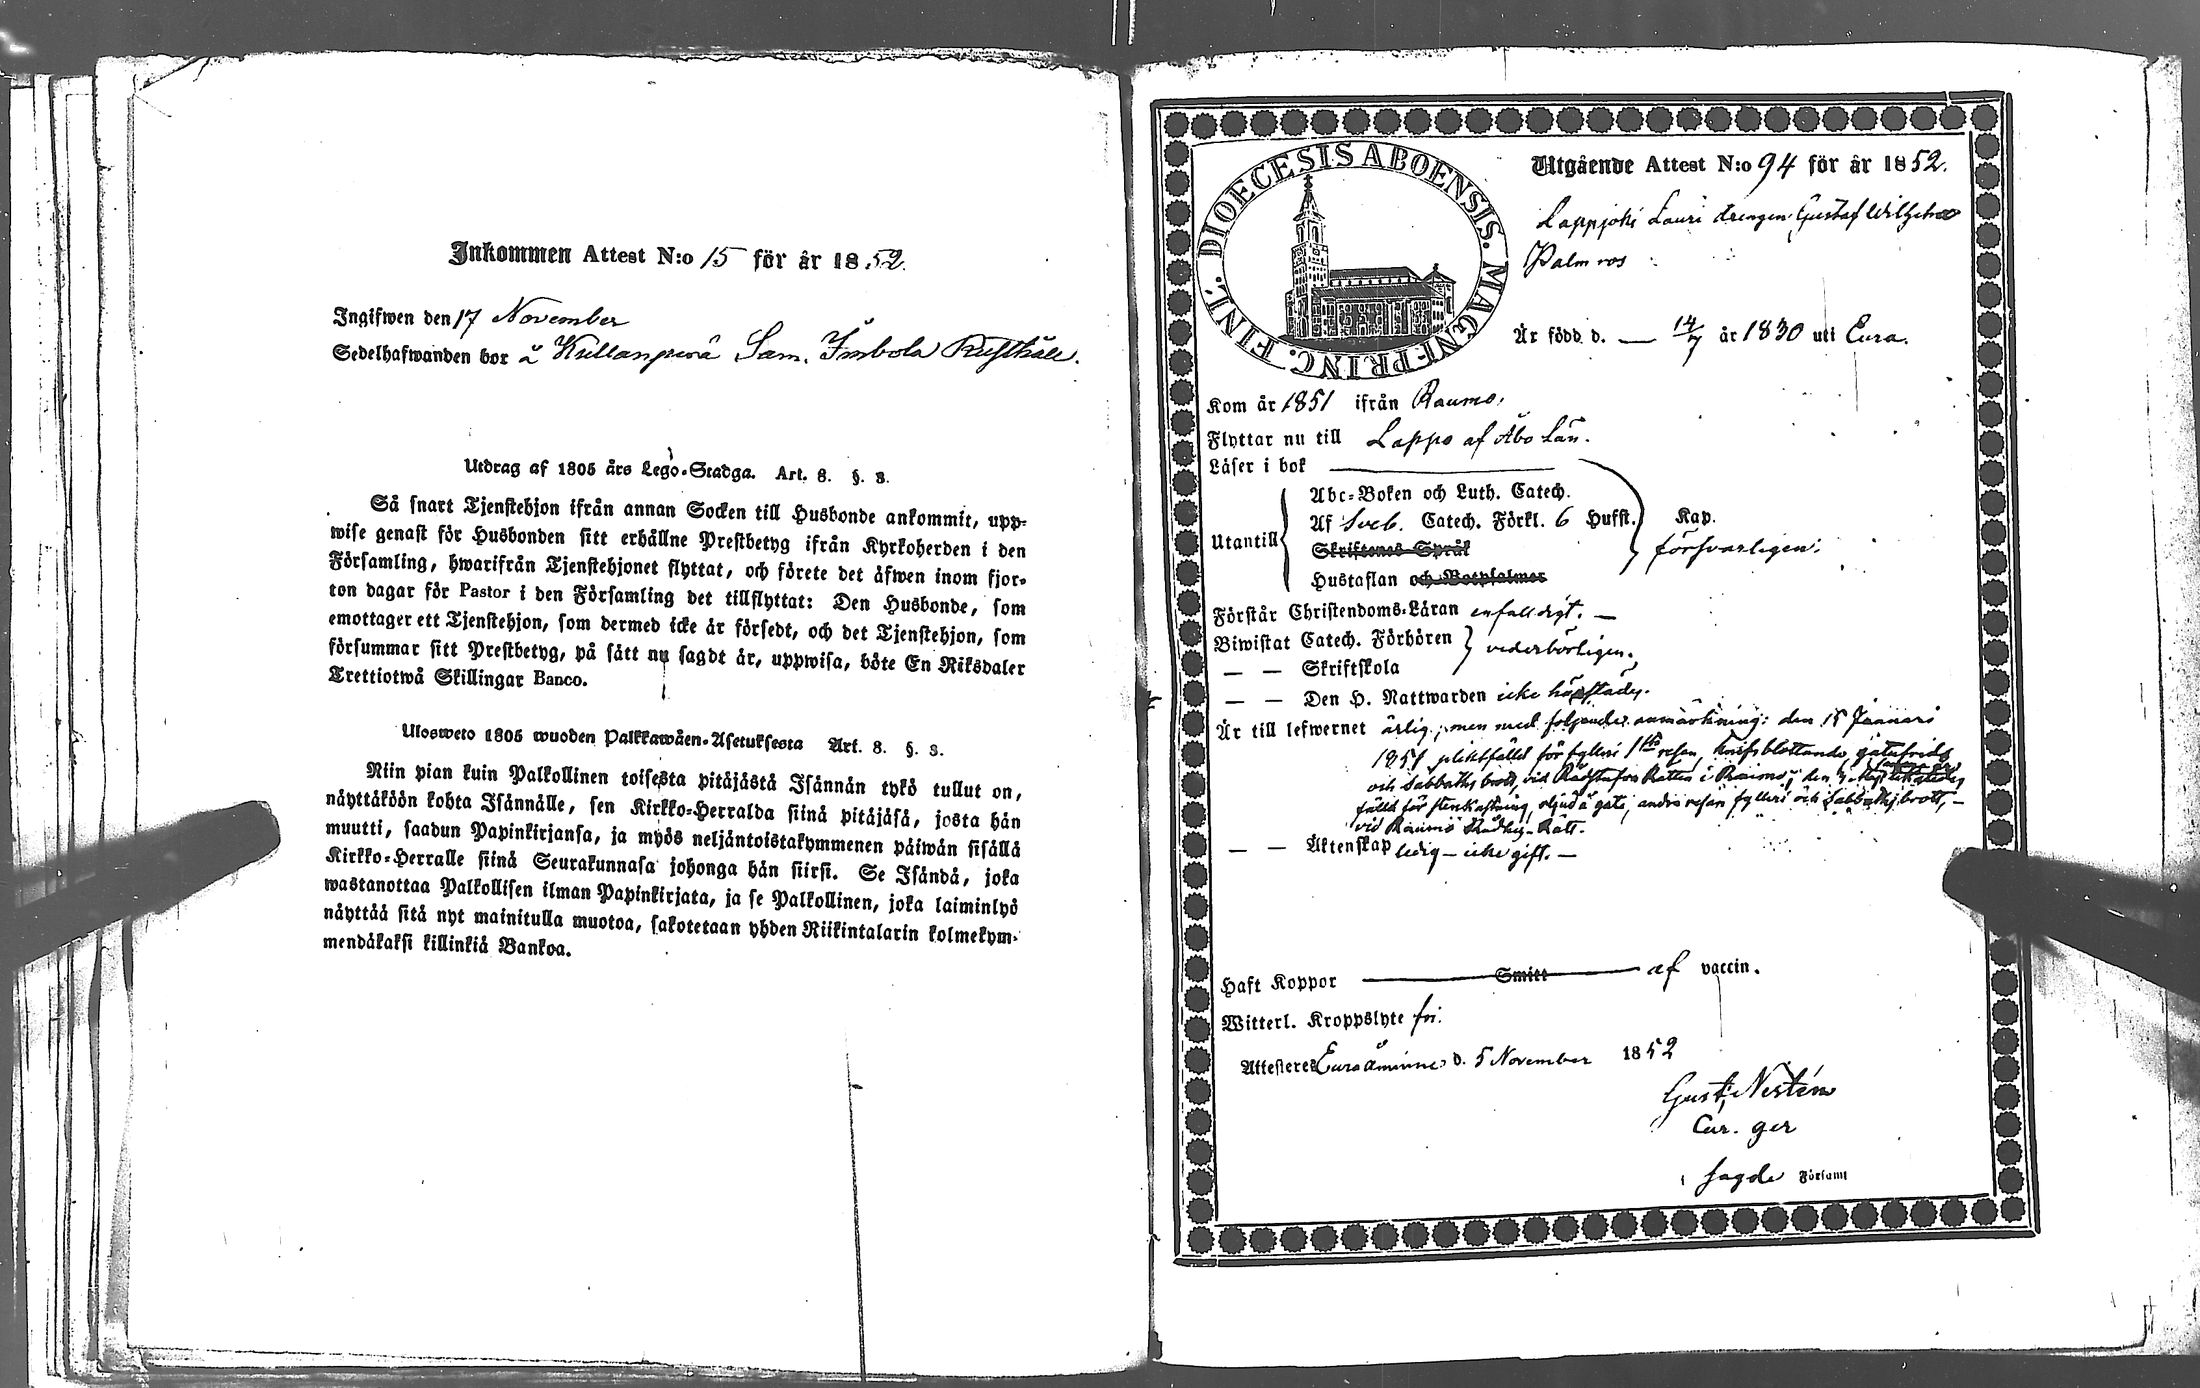 Inkommen Attest N:o 15 för år 1852.
Ingifwen den 17 November
Sedelhafwanden bor å Kullanperä Sam. Imbola Rusthåll.
Utdrag af 1805 års Lego-Stadga. Art. 8. §. 3.
Så snart Tjenstehjon ifrån annan Socken till Husbonde ankommit, upp-
wise genast för Husbonden sitt erhållne Prestbetyg ifrån Kyrkoherden i den
Församling, hwarifrån Tjenstehjonet flyttat, och förete det äfwen inom fjor-
ton dagar för Pastor i den Församling det tillflyttat: Den Husbonde, som
emottager ett Tjenstehjon, som dermed icke är försedt, och det Tjenstehjon, som
försummar sitt Prestbetyg, på sätt nu sagdt är, uppwisa, böte En Riksdaler
Trettiotwå Skillingar Banco.
Ulosweto 1805 wuoden Palkkawäen-Asetuksesta Art. 8. §. 3.
Niin pian kuin Palkollinen toisesta pitäjästä Isännän tykö tullut on,
näyttäköön kohta Isännälle, sen Kirkko-Herralda siinä pitäjäsä, josta hän
muutti, saadun Papinkirjansa, ja myös neljäntoistakymmenen päiwän sisällä
Kirkko-Herralle siinä Seurakunnasa johonga hän siirsi. Se Isändä, joka
wastanottaa Palkollisen ilman Papinkirjata, ja se Palkollinen, joka laiminlyö
näyttää sitä nyt mainitulla muotoa, sakotetaan yhden Riikintalarin kolmekym-
mendäkaksi killinkiä Bankoa.
DIOECESIS ABOENSIS. MAGNI PRINC. FINL.
Utgående Attest N:o 94 för år 1852.
Lappjoki Lauri drengen Gustaf Wilhelm
Palmros
Är född d. — 14/7 år 1830 uti Eura.
Kom år 1851 ifrån Raumo.
Flyttar nu till Lappo af Åbo Län.
Läser i bok
Utantill
Abc-Boken och Luth. Catech.
Af Sveb. Catech. Förkl. 6 Hufst. Kap.
Skriftenes Språk försvarligen.
Hustaflan och Botpsalmer
Förstår Christendoms-Läran enfaldigt. —
Biwistat Catech. Förhören vederbörligen.
— — Skriftskola
— — Den H. Nattwarden icke
Är till lefwernet ärlig, men med följande anmärkning: den 15 Januari
1851 pliktfälld för fylleri 1sta resan, knifsblottande, gatufrids
och Sabbaths brott, vid Rådstufvu Rätten i Raumo, den
fälld för stenkastning, oljud å gata, andra resan fylleri och Sabbathsbrott, —
vid Raumo Rådhus-Rätt.
— — Äktenskap ledig — icke gift. —
Haft Koppor Smitt af vaccin.
Witterl. Kroppslyte fri.
Attesteres Euraåminne d. 5 November 1852
Gust. Nestén
Cur. ger
i sagde Församl